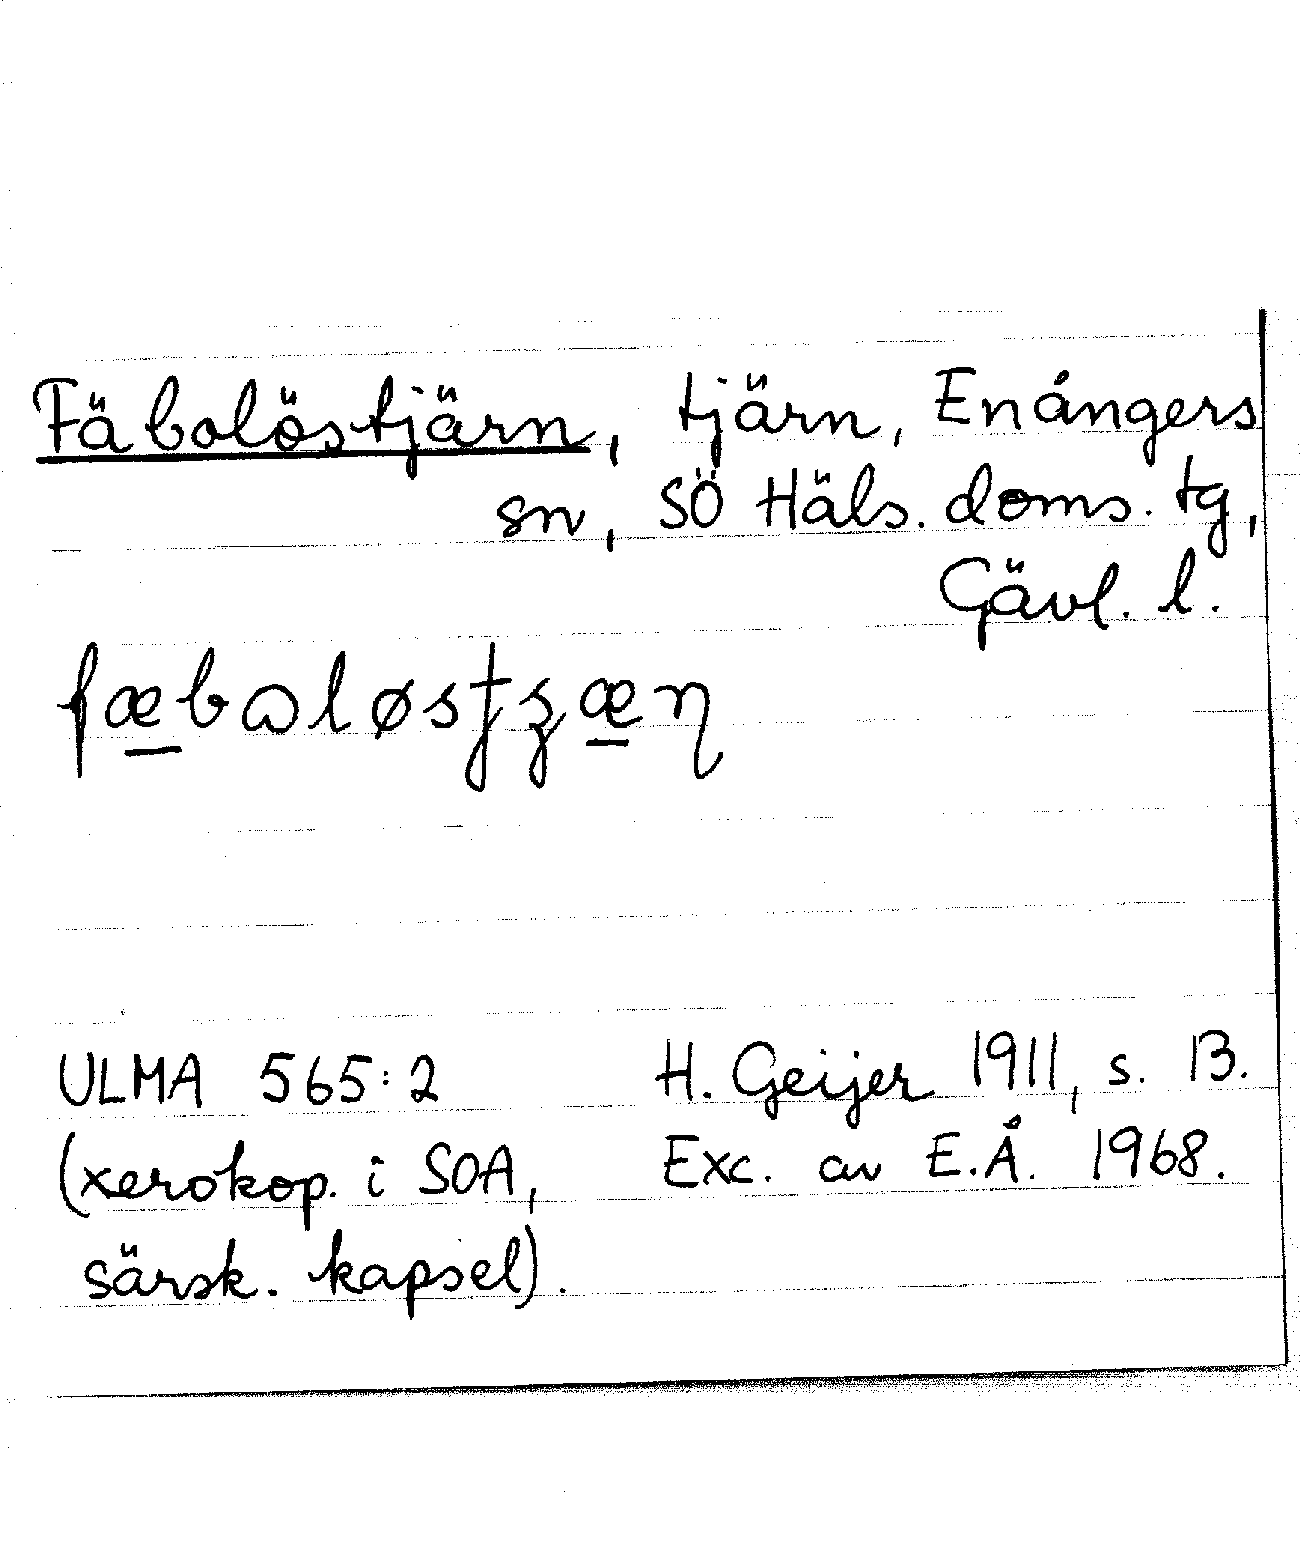 Fäbolöstjärn, tjärn, Enångers
sn, SÖ Häls. doms. tg,
Gävl. l.
fæbɷløstʒæɳ
ULMA 565:2 H. Geijer 1911, s. 13.
(xerokop. i SOA, Exc. av E.Å. 1968.
särsk. kapsel).